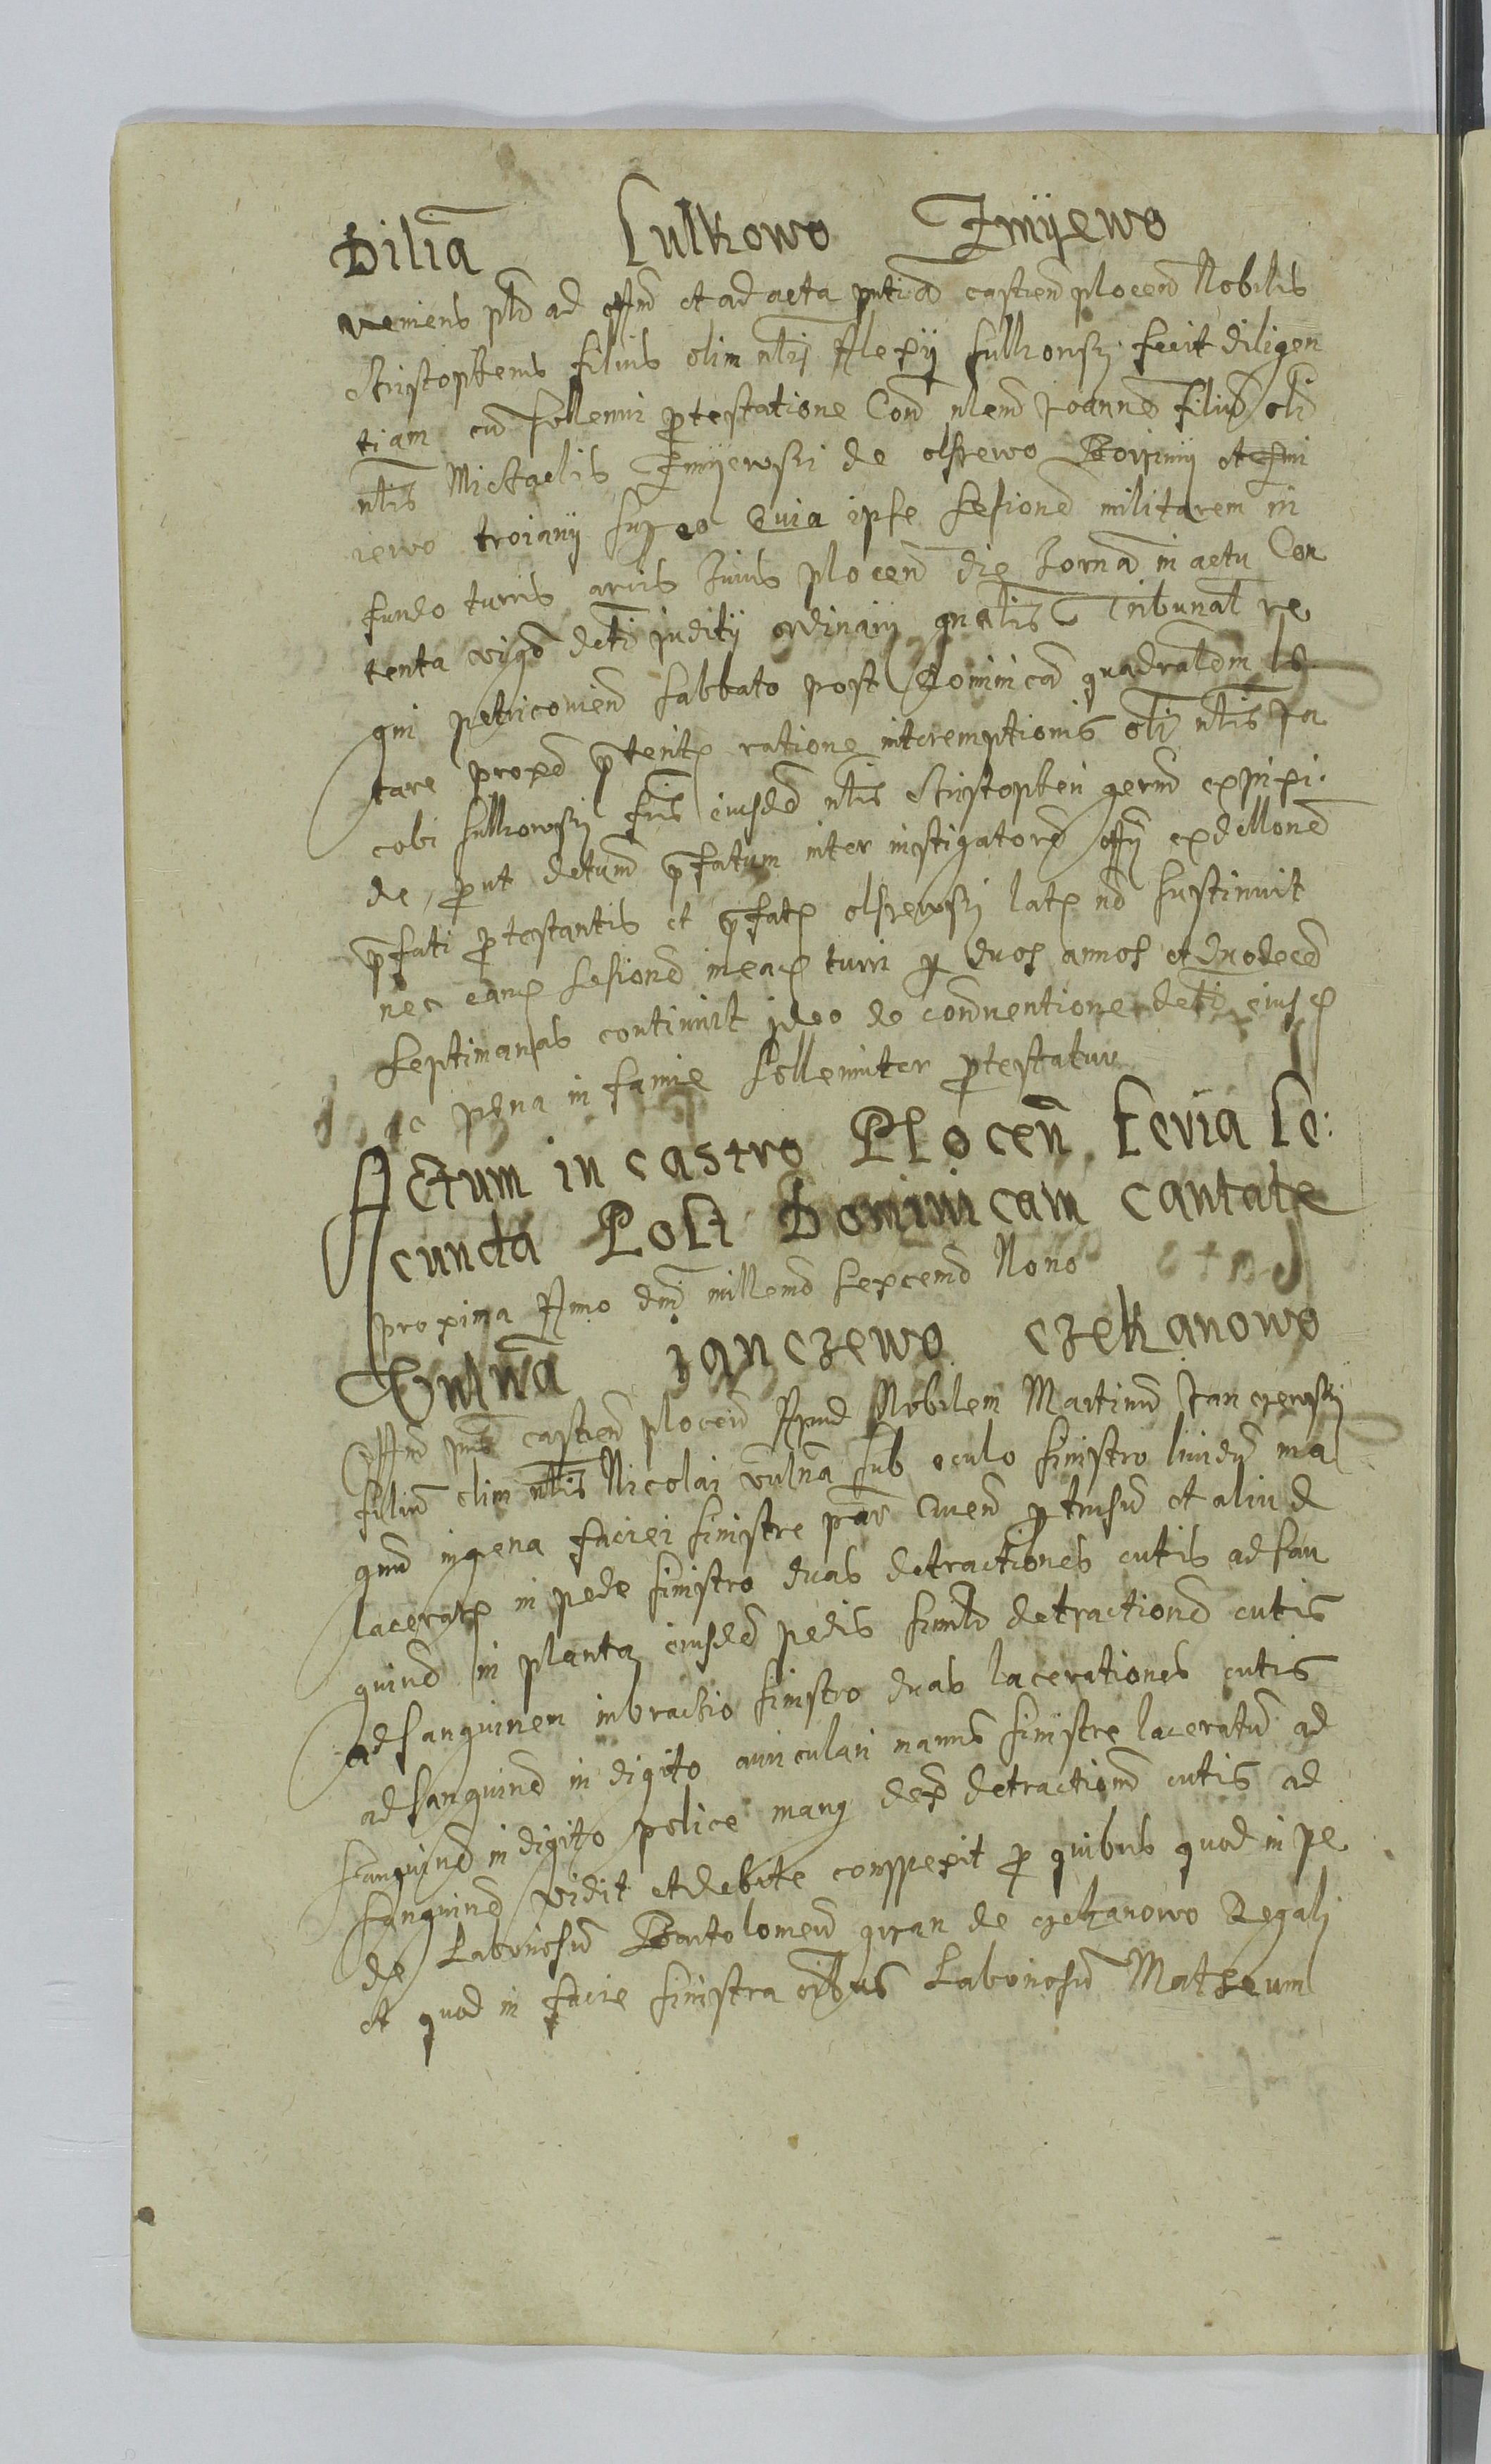 Dilia Sulkowo Zmijewo
veniens pld ad offm et ad acta pntia castren plocen Nobilis
Christopherus filius olim nlis Alexij Sulkowskj fecit diligen
tiam cu sollenni ptestatione Con nlem Joanne filiu oli
nlis Michaelis Zmijewskj de olszewo Borzimij et zmi
iewo troianij sup eo Quia ipse sessione militarem in
fundo turris arcis huius plocen die Iorna in actu Con
tenta vigo deti juditij ordinarij gnalis Tribunal re
gni petricovien sabbato post Dominica quadradm le
tare proxe pterit ratione interemptionis oli nlis Ja
cobi Sulkowskj fris eiusde nlis Christopheri germ
de, put detum pfatum inter instigatore offij
pfati ptestantis et pfat olszewskj lat no sustinuit
nec eam sessione in ea turri p duos annos et duodece
septimanas continuit ideo de conventione deti eiusq
ac pena in famie sollemniter ptestatur
Actum in castro Plocen feria se:
cunda Post Dominicam Cantate
proxima Anno dni millemo sexcemo Nono
Vulna Janczewo Czekanowo
Offm pns castren plocen Apud Nobilem Martinu Janczewskj
filiu olim nlis Nicolai vulna sub oculo sinistro liuidu ma
gnu in gena faciei sinistre par Cruen ptusu et aliud
lacerat in pede sinistro duas detractiones cutis ad san
guine in planta eiusde pedis simile detractione cutis
ad sanguinem in brachio sinistro duas lacerationes cutis
ad sanguine in digito auriculari manus sinistre laceratu ad
sanguine in digito police manq dex detractione cutis ad
sanguine vidit et debite conspexit p quibus quod in pe
de Laboriosu Bartolomeu gran de czekanowo Regali
et quod in facie sinistra Laboriosu Matheum